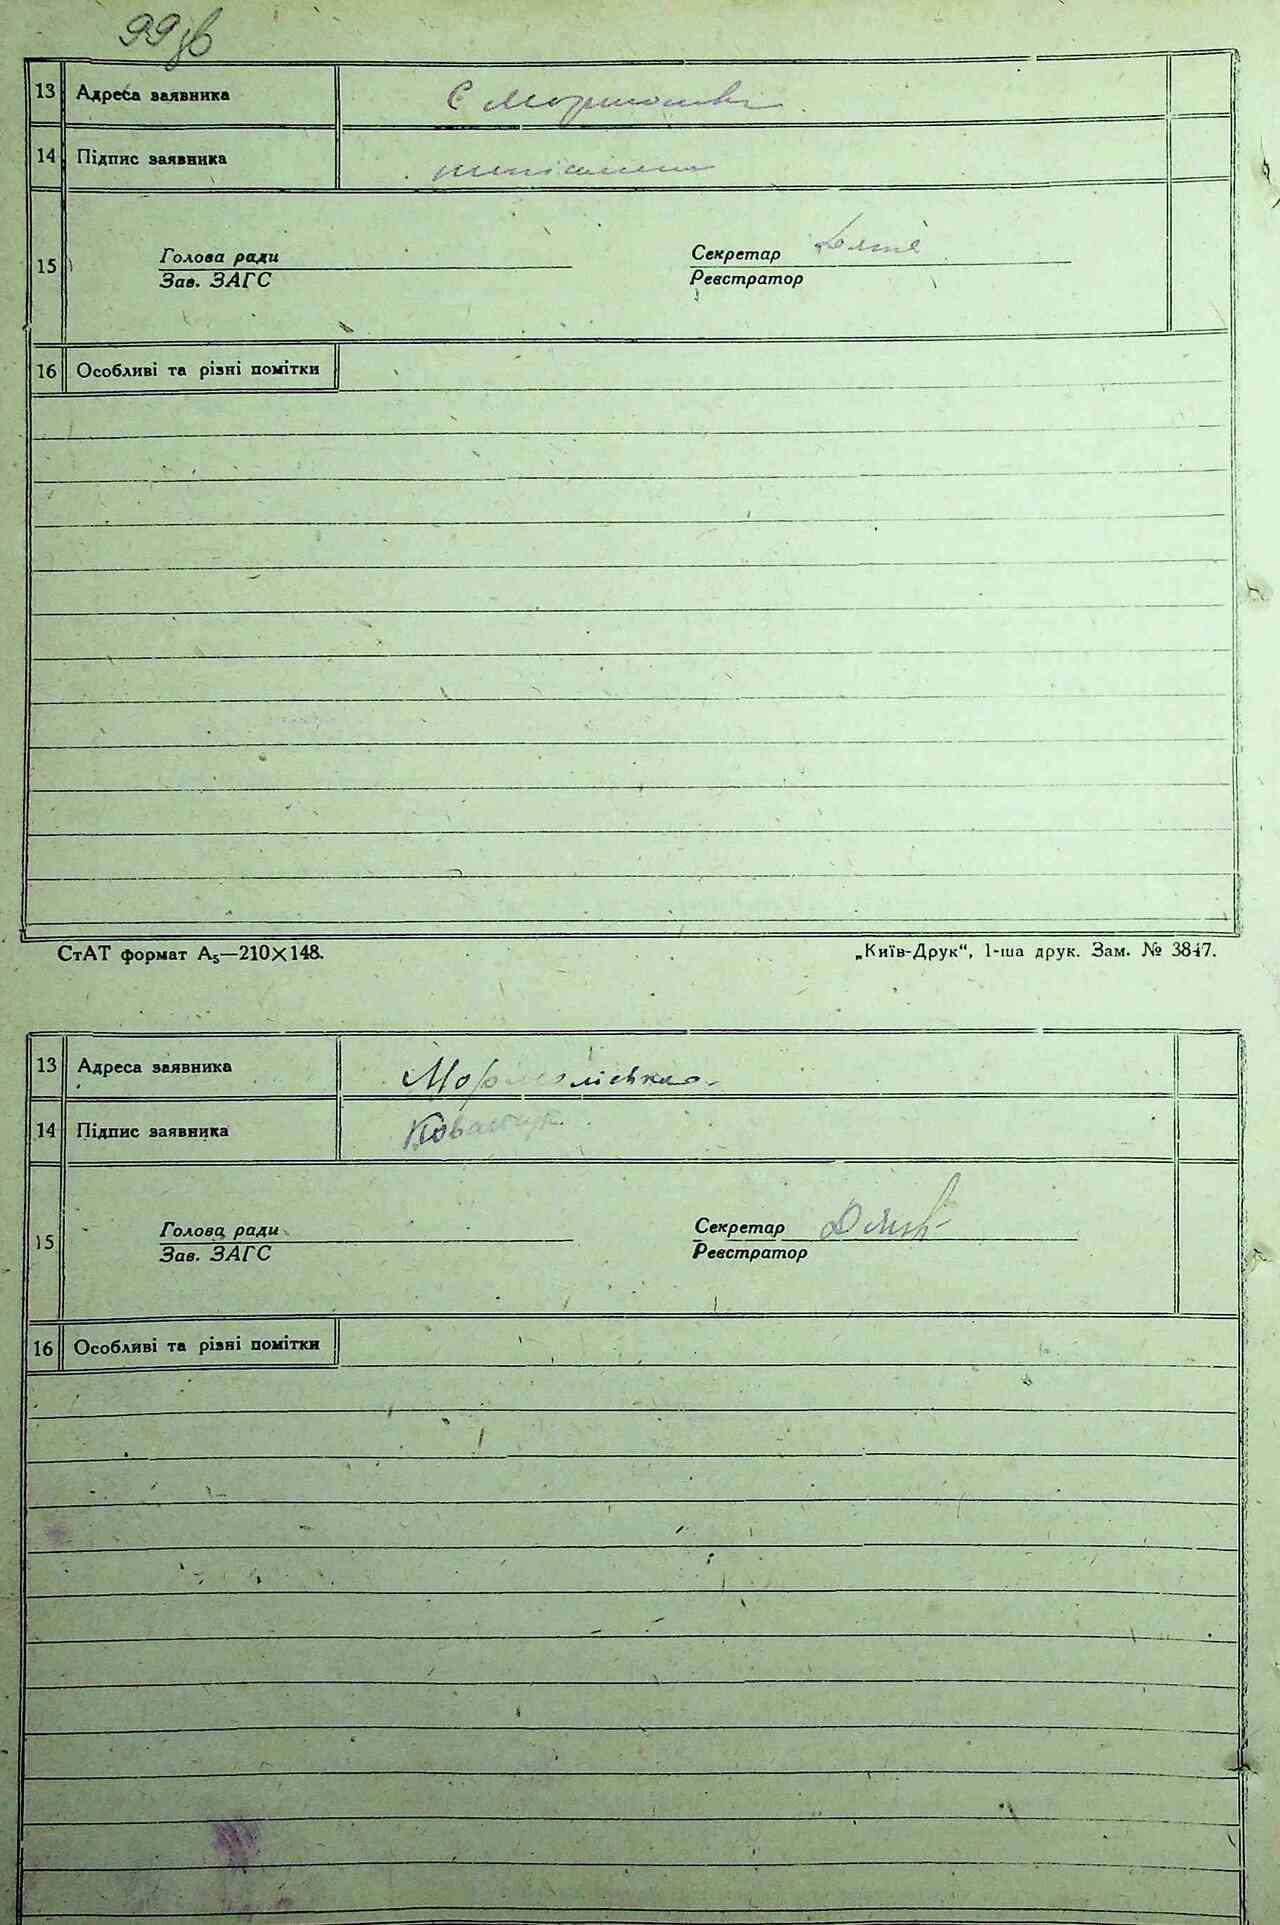 99 зв
13 Адреса заявника
14 Підпис заявника
15 Голова ради Секретар
Зав. ЗАГС Реєстратор
16 Особливі та різні помітки
СтАТ формат А₅—210×148. „Київ-Друк“, 1-ша друк. Зам. № 3847.
13 Адреса заявника
14 Підпис заявника Ковальчук
15 Голова ради Секретар
Зав. ЗАГС Реєстратор
16 Особливі та різні помітки